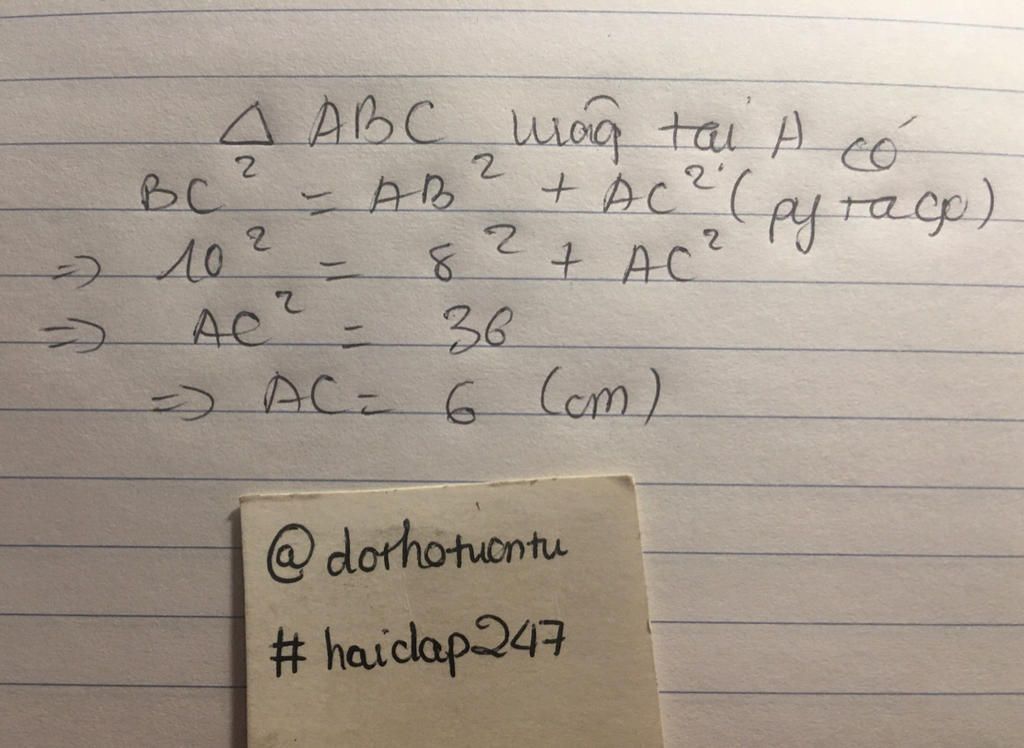 Δ ABC vuông tại A có
BC² = AB² + AC² (pytago)
=> 10² = 8² + AC²
=> AC² = 36
=> AC = 6 (cm)
@dorhotuontu
#haiclap247